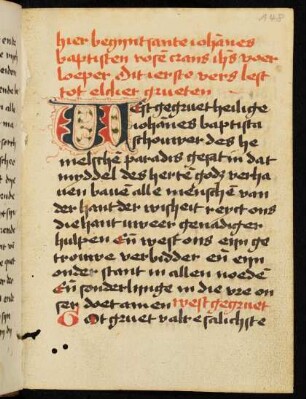 148
hier begynt sante iohānes
baptisten rosē crans ihs voer
loeper Dit ierste vers lest
tot elcker grueten
West gegruet heilige
iohānes baptista
schouwer des he
melschē paradis gesat in dat
myddel des hertē gods verha
uen bauē alle menschē van
der hant der wisheit reyct ons
die hant uwer genadiger
hulpen Eñ west ons eyn ge
trouwe verbidder en eyn
onder stant in allen noedē
Eñ sonderlinge in die vre on
ser doet amen west gegruet
Got gruet v alre salichste